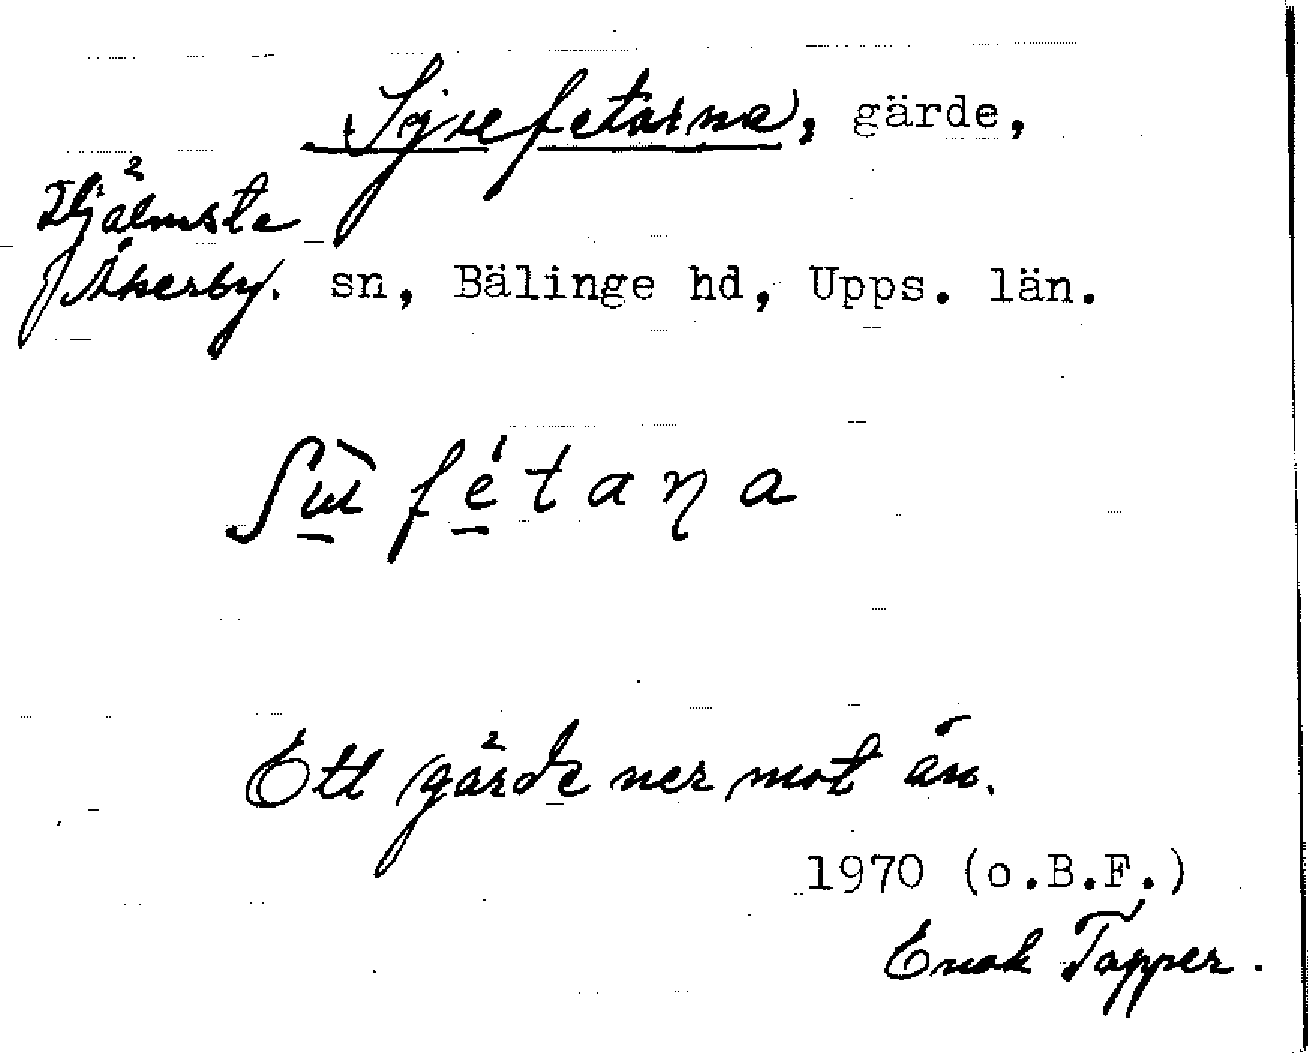 Sjvefetarna, gärde,
Hjälmsta
Åkerby. sn, Bälinge hd, Upps. län.
fétaɳa
Ett gärde ner mot ån.
1970 (o.B.F.)
Enok Tapper.